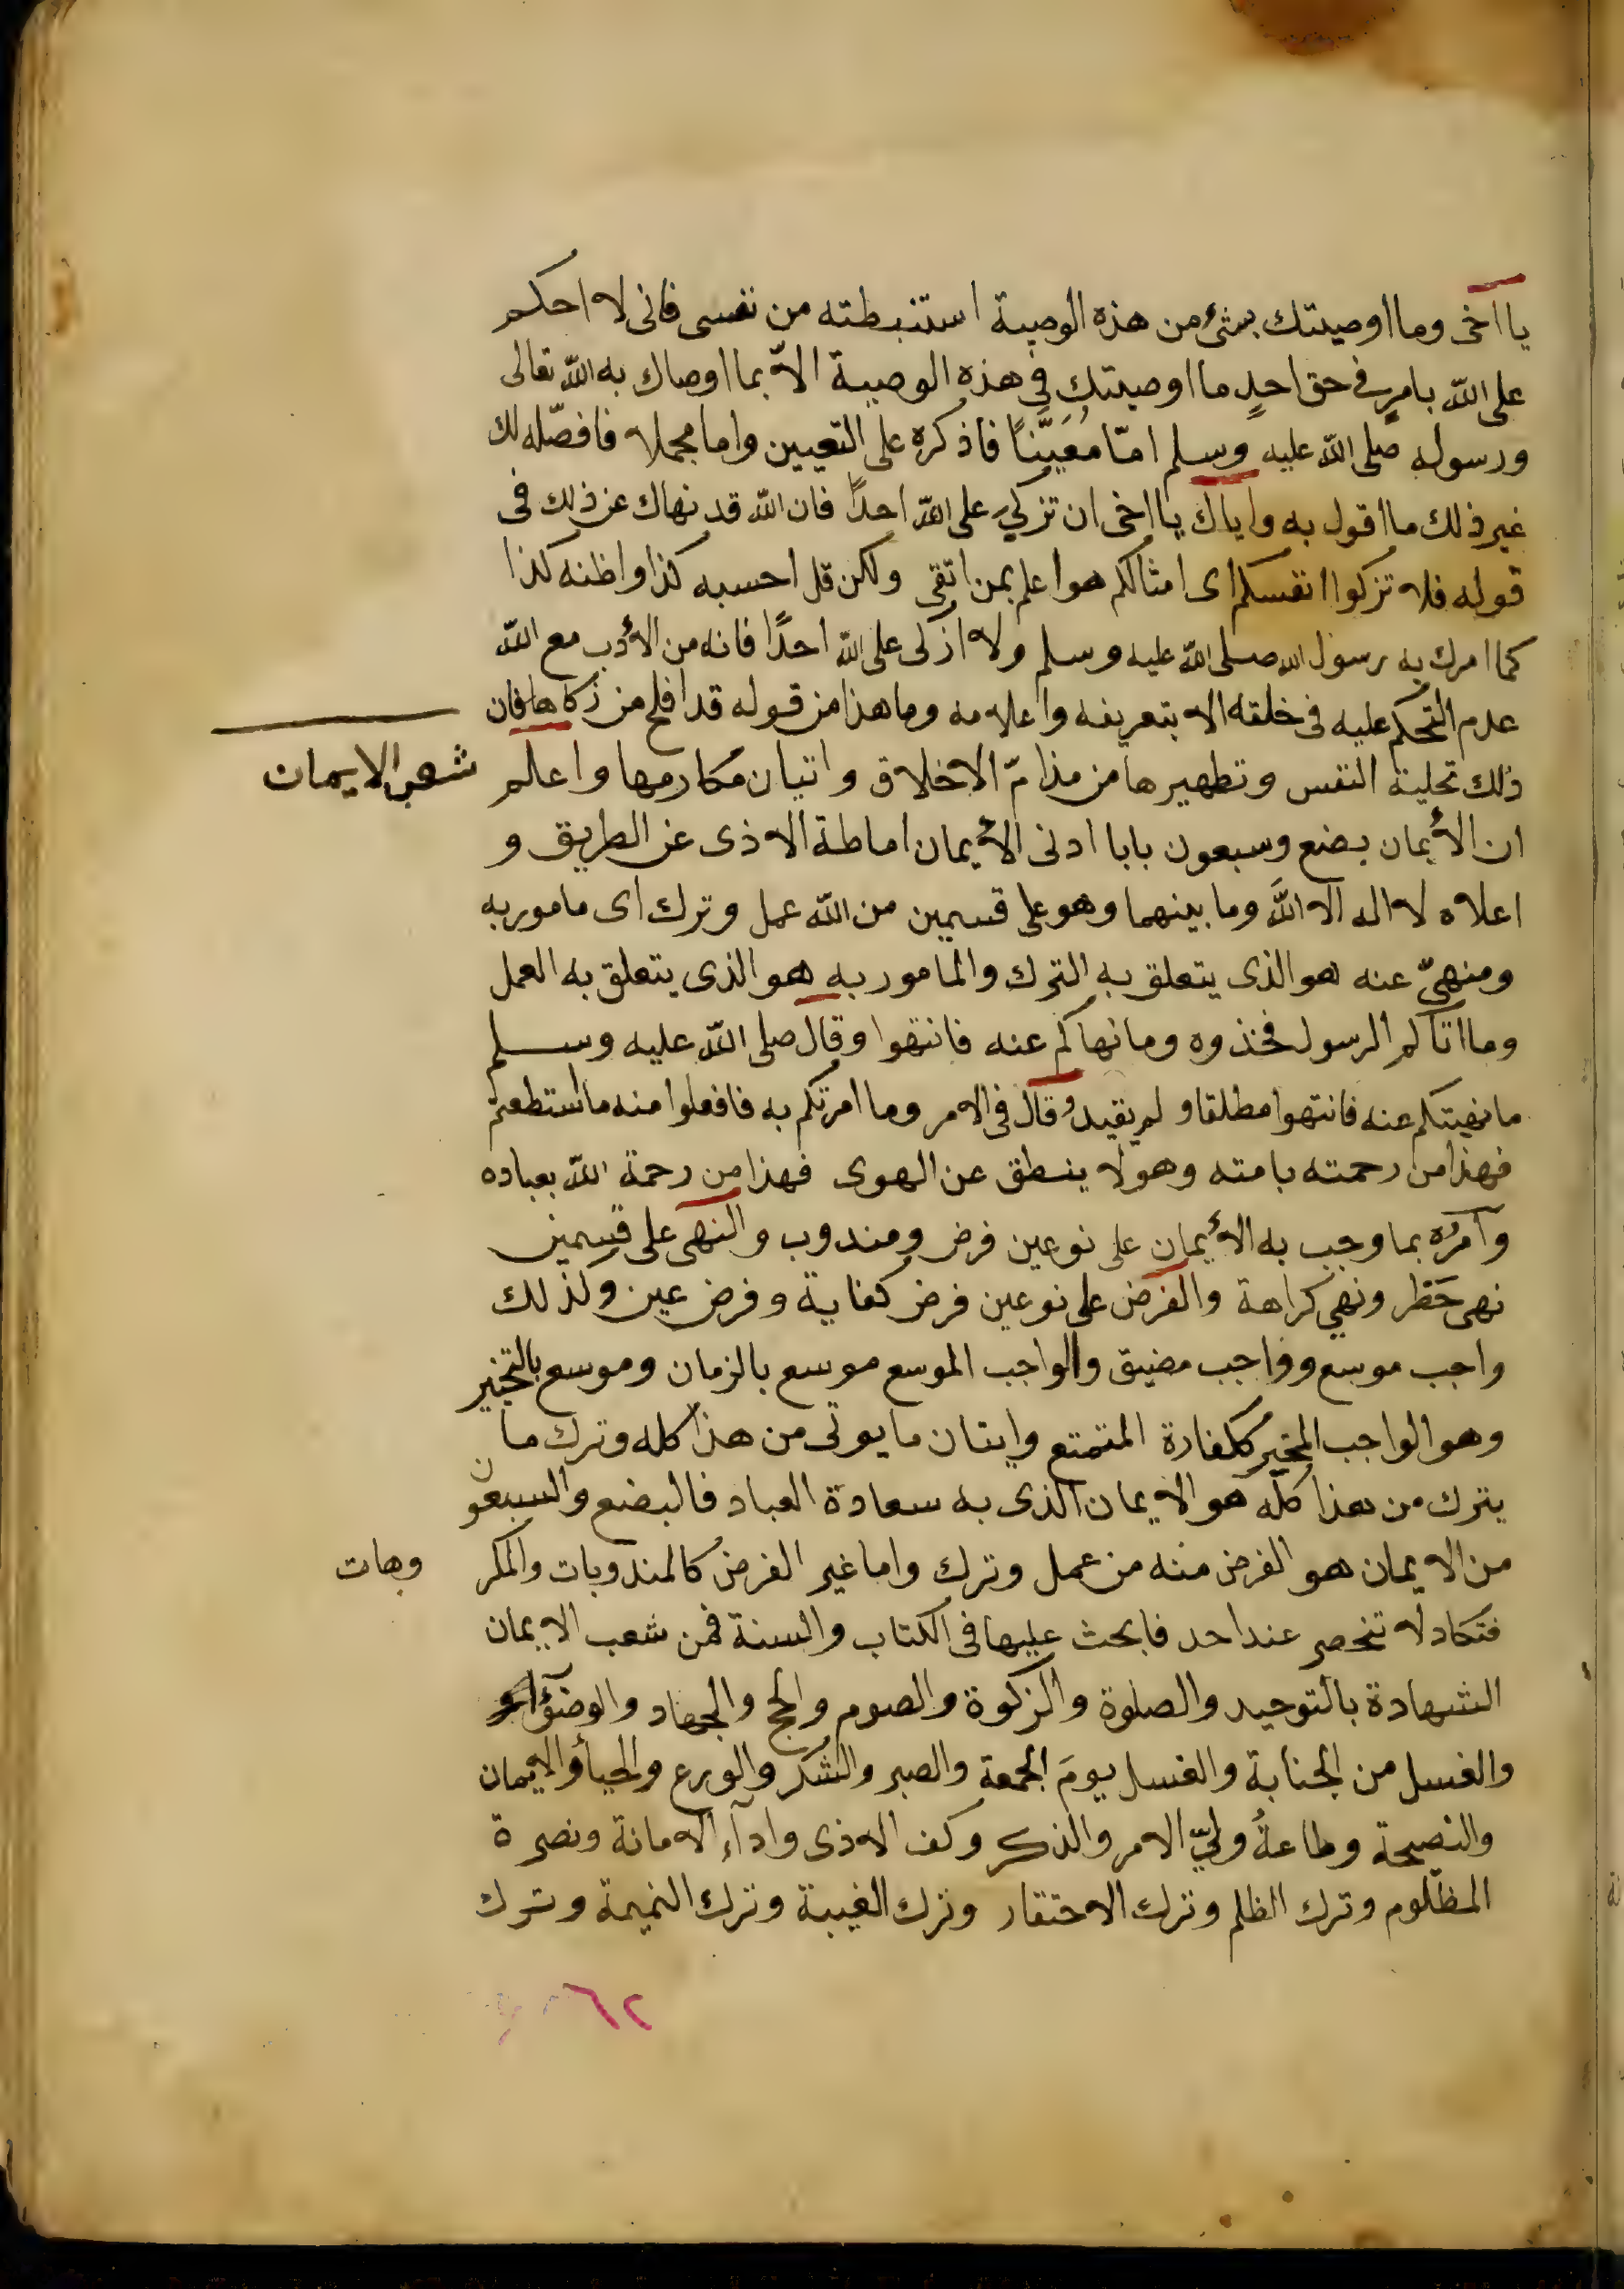 يا اخى وما اوصيتك بشئ من هذه الوصية استنبطته من نفسى فانى لا احكم
على الله بامرٍ فى حق احدٍ ما اوصيتك فى هذه الوصية الّا بما اوصاك به الله تعالى
ورسوله صلى الله عليه وسلم امّا مُعَيَّنًا فاذكره على التعيين واما مجملا فافصّله لك
غير ذلك ما اقول به واياك يا اخى ان تزكى على الله احدًا فان الله قد نهاك عن ذلك فى
قوله فلا تزكوا انفسكم اى امثالكم هو اعلم بمن اتقى ولكن قل احسبه كذا واظنه كذا
كما امرك به رسول الله صلى الله عليه وسلم ولا ازكى على الله احدًا فانه من الأدب مع الله
عدم التحكم عليه فى خلقه الا بتعريفه واعلامه وما هذا من قوله قد افلح من زكاها فان
ذلك تحلية النفس وتطهيرها من مذامّ الاخلاق واتيان مكارمها واعلم
شعب الايمان
ان الأيمان بضع وسبعون بابا ادنى الأيمان اماطة الاذى عن الطريق و
اعلاه لا اله الا الله وما بينهما وهو على قسمين من الله عمل وترك اى مامور به
ومنهىّ عنه هو الذى يتعلق به الترك والمامور به هو الذى يتعلق به العمل
وما اتاكم الرسول فخذوه وما نهاكم عنه فانتهوا وقال صلى الله عليه وسلم
ما نهيتكم عنه فانتهوا مطلقا ولم يقيد وقال فى الامر وما امرتكم به فافعلوا منه ما استطعتم
فهذا من رحمته بامته وهو لا ينطق عن الهوى فهذا من رحمة الله بعباده
وآمره بما وجب به الأيمان على نوعين فرض ومندوب والنهى على قسمين
نهى حَظر ونهى كراهة والفرض على نوعين فرض كفاية وفرض عين ولذلك
واجب موسع وواجب مضيق والواجب الموسع موسع بالزمان وموسع بالتخيير
وهو الواجب المخير ككفارة المتمتع واتيان ما يوتى من هذا كله وترك ما
يترك من هذا كله هو الايمان الذى به سعادة العباد فالبضع والسبعون
من الايمان هو الفرض منه من عمل وترك واما غير الفرض كالمندوبات والمكروهات
فتكاد لا تنحصر عند احد فابحث عليها فى الكتاب والسنة فمن شعب الايمان
الشهادة بالتوحيد والصلوة والزكوة والصوم والحج والجهاد والوضوء
والغسل من الجنابة والغسل يومَ الجمعة والصبر والشكر والورع والحيأ والايمان
والنصيحة وطاعةُ ولىّ الامر والذكر وكف الاذى وادآء الامانة ونصرة
المظلوم وترك الظلم وترك الاحتقار وترك الغيبة وترك النميمة وترك
٦٢